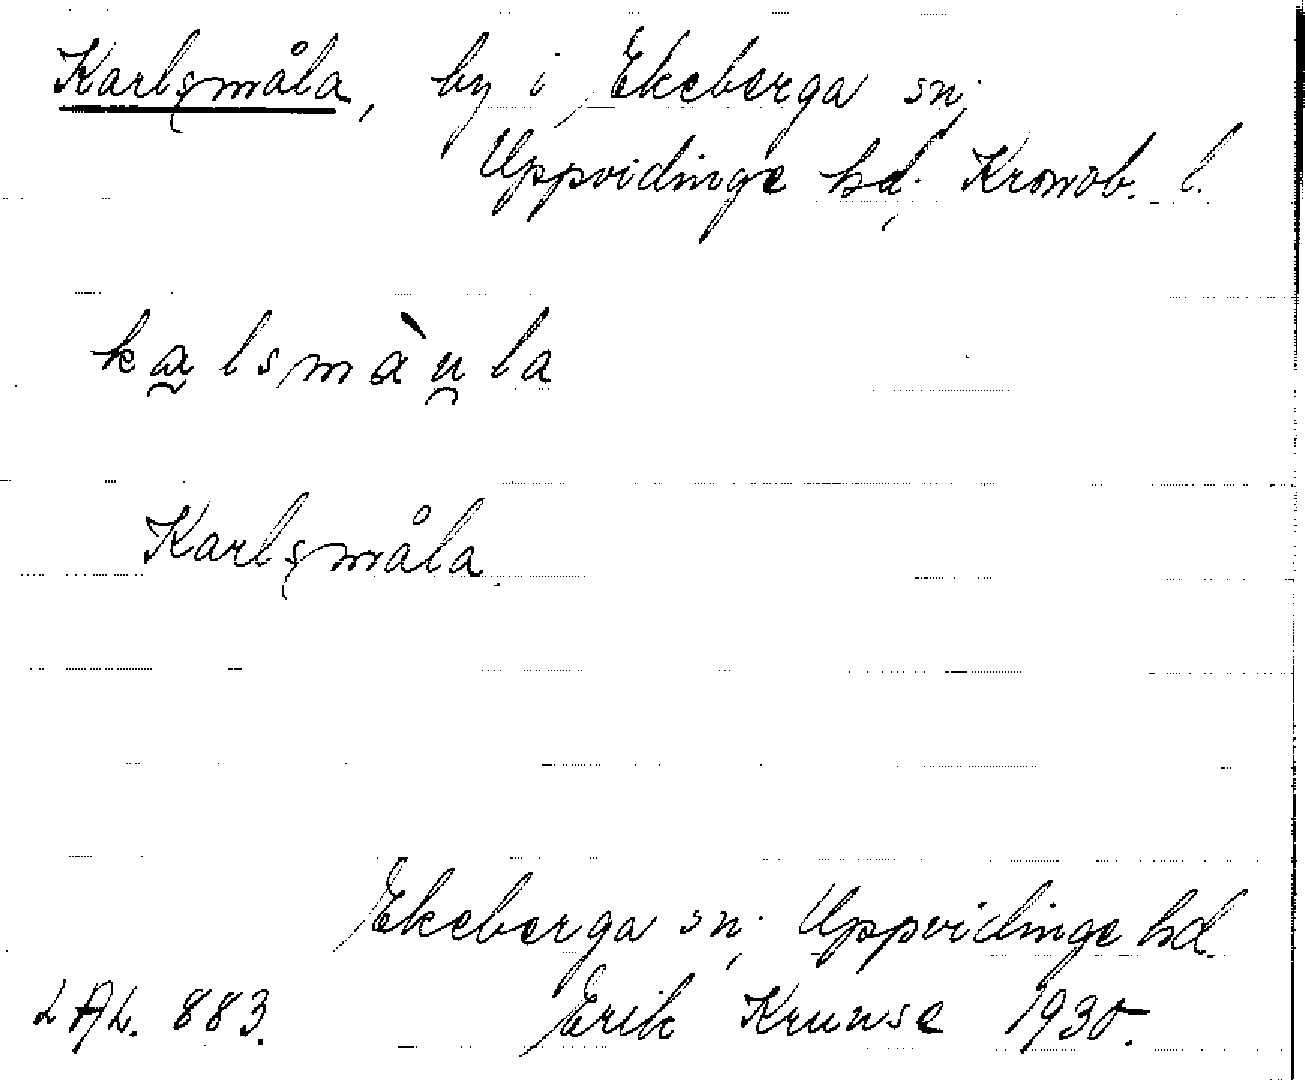 Karlsmåla, by i Ekeberga sn;
Uppvidinge hd; Kronob. l.
kalsmàula
Karlsmåla.
Ekeberga sn; Uppvidinge hd.
LAL. 883. Erik Kruuse 1930.